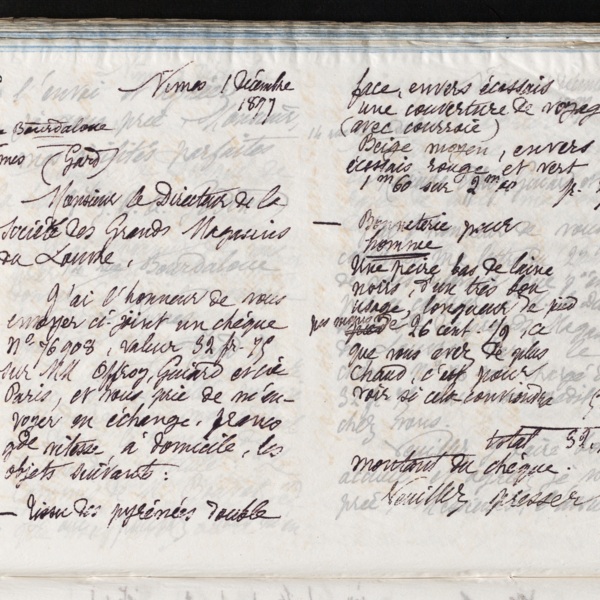 Nimes 1 Décembre
1897
Bourdaloue
(Gard)
Monsieur le Directeur de la
Société des Grands Magasins
du Louvre,
J'ai l'honneur de vous
envoyer ci-joint un chèque
N° 76908, valeur 32 fr 75
sur MM Offroy, Guiard et Cie
Paris, et vous prie de m'en-
voyer en échange, franco
gde vitesse, à domicile, les
objets suivants :
— tissu des pyrénées double
face, envers écossais
une couverture de voyag
(avec courroie)
Beige moyen, envers
écossais rouge et vert
1m 60 sur
— Bonneterie pour
homme
Une paire bas de laine
noirs, d'un très bon
usage, longueur de pied
26 cent 1/2 ce
que vous avez de plus
chaud, c'est pour
voir si cela conviendra
total 32.
montant du chèque.
Veuillez presser